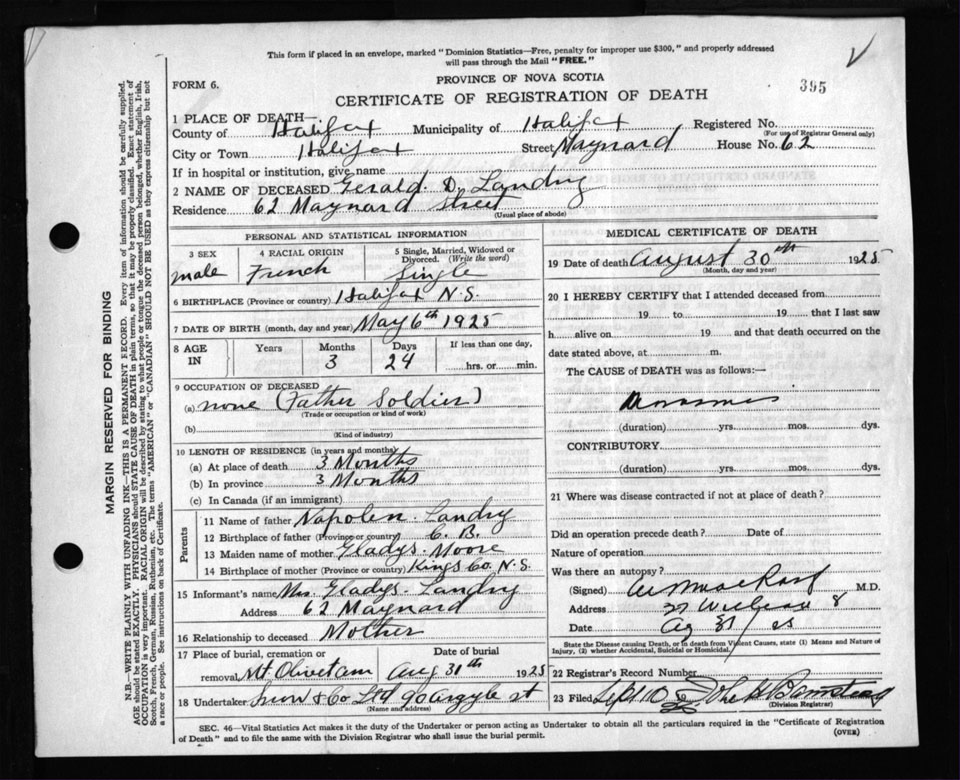 This form if placed in an envelope, marked "Dominion Statistics—Free, penalty for improper use $300," and properly addressed
will pass through the Mail "FREE."
FORM 6.
PROVINCE OF NOVA SCOTIA
395
CERTIFICATE OF REGISTRATION OF DEATH
1 PLACE OF DEATH—
County of Halifax Municipality of Halifax Registered No.
(For use of Registrar General only)
City or Town Halifax Street Maynard House No. 62
If in hospital or institution, give name
2 NAME OF DECEASED Gerald. D. Landry
Residence 62 Maynard Street
(Usual place of abode)
PERSONAL AND STATISTICAL INFORMATION
3 SEX male
4 RACIAL ORIGIN French
5 Single, Married, Widowed or Divorced. (Write the word) Single
6 BIRTHPLACE (Province or country) Halifax N.S.
7 DATE OF BIRTH (month, day and year) May 6th 1925
8 AGE IN Years Months 3 Days 24 If less than one day, hrs. or min.
9 OCCUPATION OF DECEASED
(a) none (Father Soldier)
(Trade or occupation or kind of work)
(b)
(Kind of industry)
10 LENGTH OF RESIDENCE (in years and months)
(a) At place of death 3 Months
(b) In province 3 Months
(c) In Canada (if an immigrant)
Parents
11 Name of father Napolen Landry
12 Birthplace of father (Province or country) C. B.
13 Maiden name of mother Gladys Moore
14 Birthplace of mother (Province or country) Kings Co. N.S.
15 Informant's name Mrs. Gladys Landry
Address 62 Maynard
16 Relationship to deceased Mother
17 Place of burial, cremation or removal Mt. Olivet am Date of burial Aug 31th 1925
18 Undertaker Snow & Co Ltd 90 Argyle st
(Name and address)
MEDICAL CERTIFICATE OF DEATH
19 Date of death August 30th 1925
(Month, day and year)
20 I HEREBY CERTIFY that I attended deceased from
19 to 19 that I last saw
h alive on 19 and that death occurred on the
date stated above, at m.
The CAUSE of DEATH was as follows:—
Marasmus
(duration) yrs. mos. dys.
CONTRIBUTORY
(duration) yrs. mos. dys.
21 Where was disease contracted if not at place of death?
Did an operation precede death? Date of
Nature of operation
Was there an autopsy?
(Signed) M.D.
Address
Date Ag 31/25
State the Disease causing Death, or in death from Violent Causes, state (1) Means and Nature of
Injury, (2) whether Accidental, Suicidal or Homicidal.
22 Registrar's Record Number
23 Filed Sept 10 19
(Division Registrar)
SEC. 46—Vital Statistics Act makes it the duty of the Undertaker or person acting as Undertaker to obtain all the particulars required in the "Certificate of Registration
of Death" and to file the same with the Division Registrar who shall issue the burial permit.
(OVER)
MARGIN RESERVED FOR BINDING
N.B.—WRITE PLAINLY WITH UNFADING INK—THIS IS A PERMANENT RECORD. Every item of information should be carefully supplied.
AGE should be stated EXACTLY. PHYSICIANS should STATE CAUSE OF DEATH in plain terms, so that it may be properly classified. Exact statement of
OCCUPATION is very important. RACIAL ORIGIN will be described by stating to what people or tongue the deceased person belonged, whether English, Irish,
Scotch, French, German, Russian, Ruthenian, etc. The terms "AMERICAN" or "CANADIAN" SHOULD NOT BE USED as they express citizenship but not
a race or people. See instructions on back of Certificate.